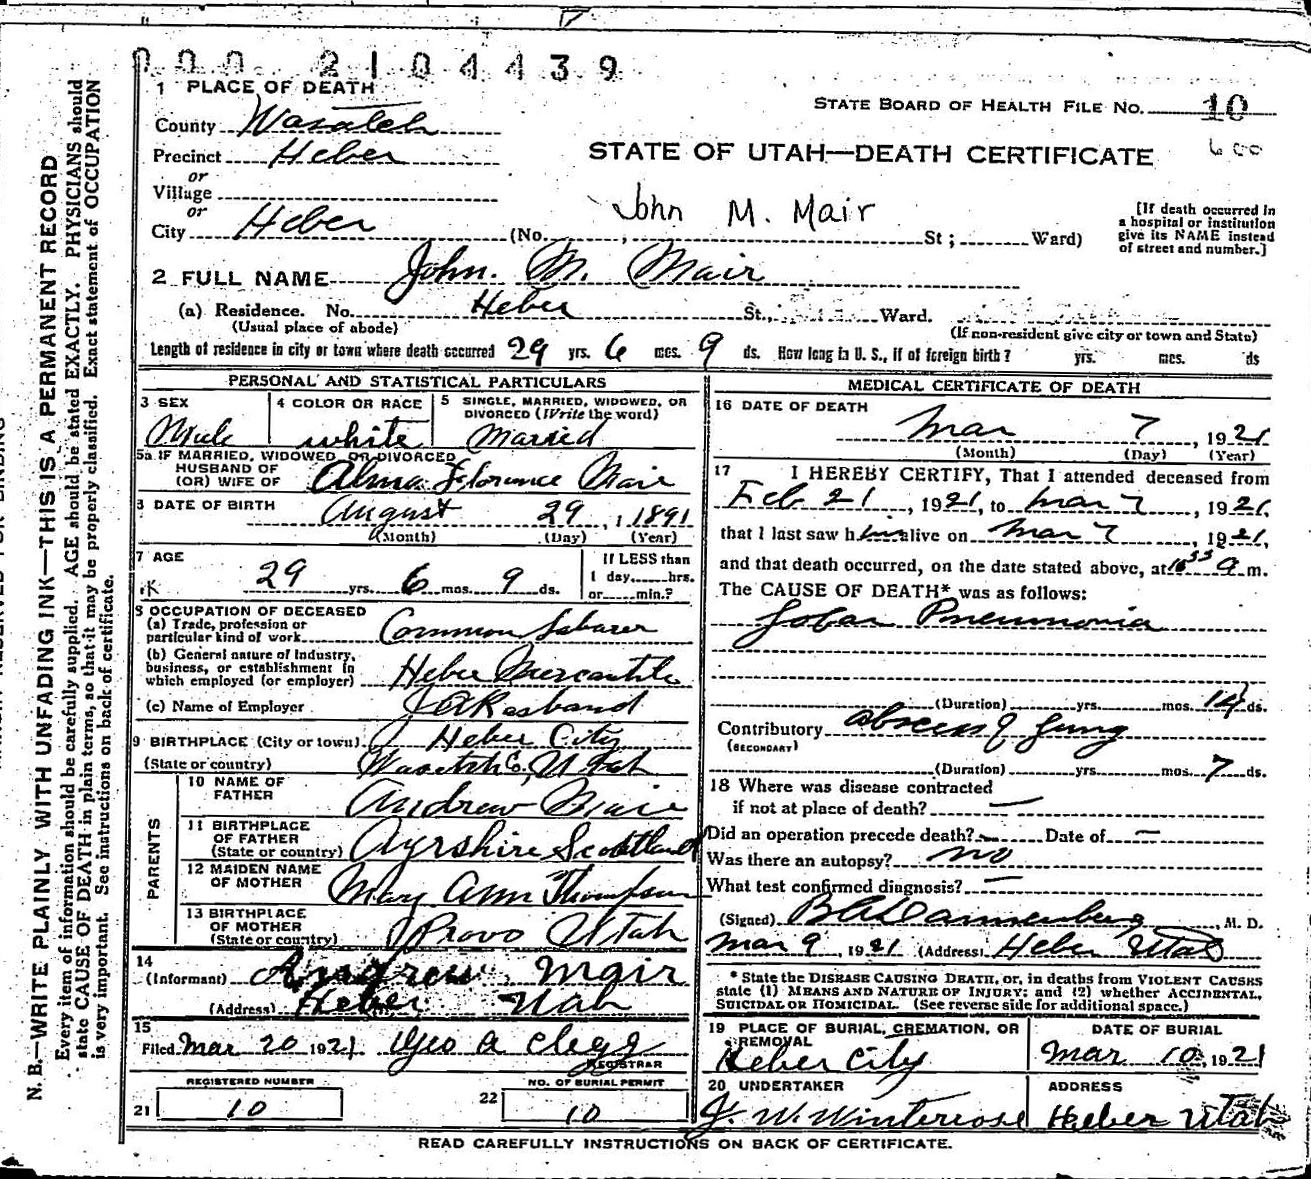 000 2104439
1 PLACE OF DEATH
STATE BOARD OF HEALTH FILE NO. 10
County Wasatch
Precinct Heber
STATE OF UTAH—DEATH CERTIFICATE 600
or
Village
or
John M. Mair
[If death occurred in a hospital or institution give its NAME instead of street and number.]
City Heber (No. , St; Ward)
2 FULL NAME John. M. Mair
(a) Residence. No. Heber St., Ward.
(Usual place of abode) (If non-resident give city or town and State)
Length of residence in city or town where death occurred 29 yrs. 6 mos. 9 ds. How long in U. S., if of foreign birth? yrs. mos. ds
PERSONAL AND STATISTICAL PARTICULARS
3 SEX Male
4 COLOR OR RACE white
5 SINGLE, MARRIED, WIDOWED, OR DIVORCED (Write the word) Married
5a IF MARRIED, WIDOWED OR DIVORCED
HUSBAND OF
(OR) WIFE OF Alma Florence Mair
6 DATE OF BIRTH August 29, 1891
(Month) (Day) (Year)
7 AGE
29 yrs. 6 mos. 9 ds.
If LESS than
1 day......hrs.
or......min.?
8 OCCUPATION OF DECEASED
(a) Trade, profession or
particular kind of work Common Labarer
(b) General nature of Industry,
business, or establishment in
which employed (or employer) Heber Mercantile
(c) Name of Employer J A Rasband
9 BIRTHPLACE (City or town) Heber City
(State or country) Wasatch Co, Utah
PARENTS
10 NAME OF FATHER Andrew Mair
11 BIRTHPLACE OF FATHER (State or country) Ayrshire Scottland
12 MAIDEN NAME OF MOTHER Mary Ann Thompson
13 BIRTHPLACE OF MOTHER (State or country) Provo Utah
14
(Informant) Andrew Mair
(Address) Heber Utah
15
Filed Mar 20 1921 Geo A Clegg
REGISTRAR
REGISTERED NUMBER
21 10
NO. OF BURIAL PERMIT
22 10
MEDICAL CERTIFICATE OF DEATH
16 DATE OF DEATH
Mar 7, 1921
(Month) (Day) (Year)
17 I HEREBY CERTIFY, That I attended deceased from
Feb 21, 1921, to Mar 7, 1921,
that I last saw him alive on Mar 7, 1921,
and that death occurred, on the date stated above, at a m.
The CAUSE OF DEATH* was as follows:
Lobar Pneumonia
(Duration) yrs. mos. 14 ds.
Contributory abscess of Lung
(SECONDARY)
(Duration) yrs. mos. 7 ds.
18 Where was disease contracted
if not at place of death? —
Did an operation precede death? — Date of —
Was there an autopsy? no
What test confirmed diagnosis? —
(Signed) Dannenberg, M. D.
Mar 9, 1921 (Address) Heber Utah
* State the DISEASE CAUSING DEATH, or, in deaths from VIOLENT CAUSES
state (1) MEANS AND NATURE OF INJURY; and (2) whether ACCIDENTAL,
SUICIDAL OR HOMICIDAL. (See reverse side for additional space.)
19 PLACE OF BURIAL, CREMATION, OR REMOVAL
Heber City
DATE OF BURIAL
Mar 10, 1921
20 UNDERTAKER
ADDRESS
J. W. Winterrose Heber Utah
READ CAREFULLY INSTRUCTIONS ON BACK OF CERTIFICATE.
N. B.—WRITE PLAINLY WITH UNFADING INK—THIS IS A PERMANENT RECORD
Every item of information should be carefully supplied. AGE should be stated EXACTLY. PHYSICIANS should
state CAUSE OF DEATH in plain terms, so that it may be properly classified. Exact statement of OCCUPATION
is very important. See instructions on back of certificate.